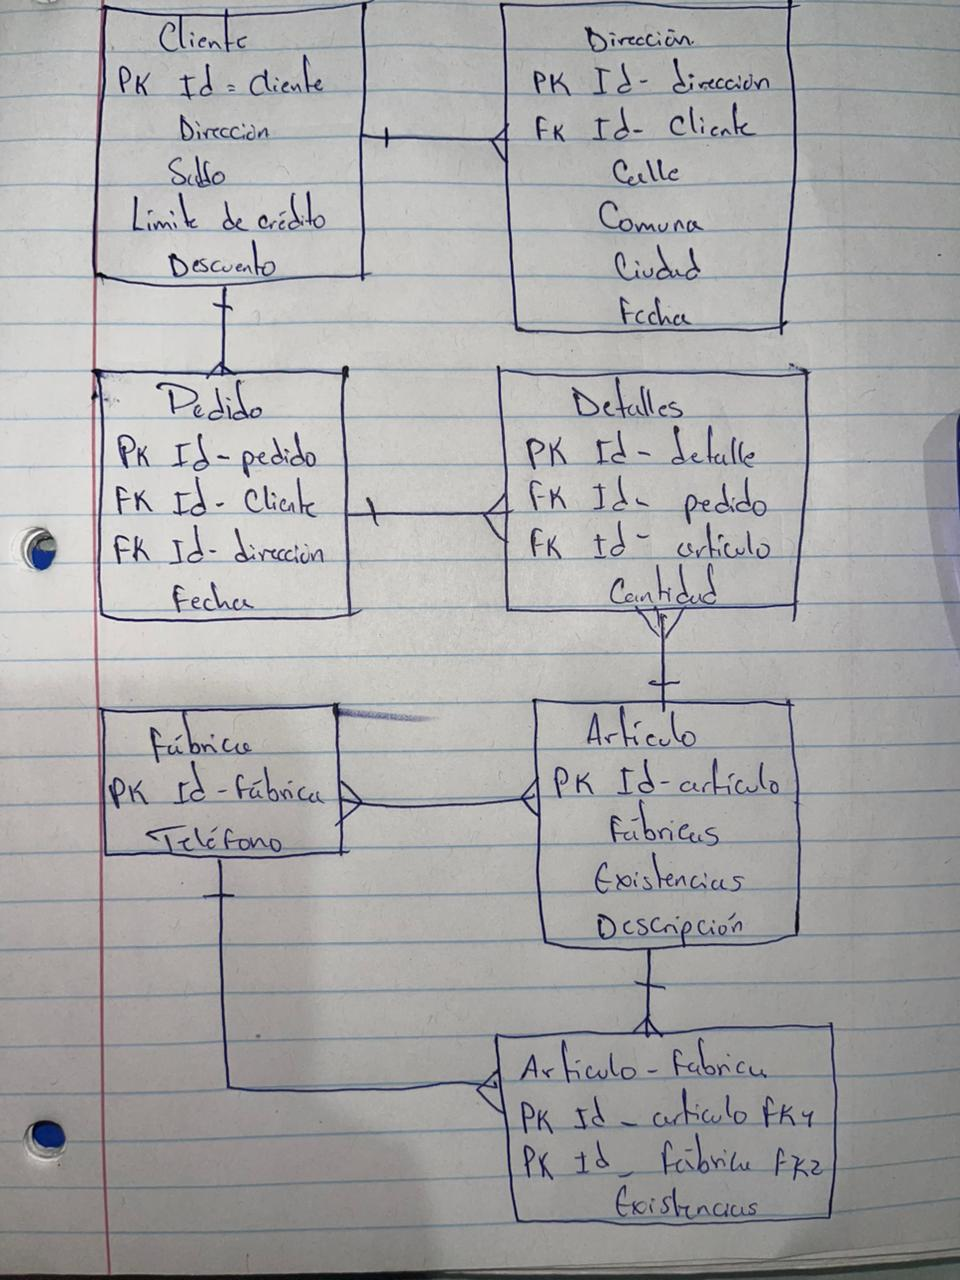 Cliente
PK Id = Cliente
Dirección
Saldo
Límite de crédito
Descuento
Dirección
PK Id- dirección
FK Id- Cliente
Calle
Comuna
Ciudad
Fecha
Pedido
PK Id-pedido
FK Id- Cliente
FK Id- dirección
Fecha
Detalles
PK Id- detalle
FK Id- pedido
FK Id- artículo
Cantidad
Fábrica
PK Id-fábrica
Teléfono
Artículo
PK Id-artículo
Fábricas
Existencias
Descripción
Artículo-Fabrica
PK Id_ artículo FK1
PK Id_ fábrica FK2
Existencias